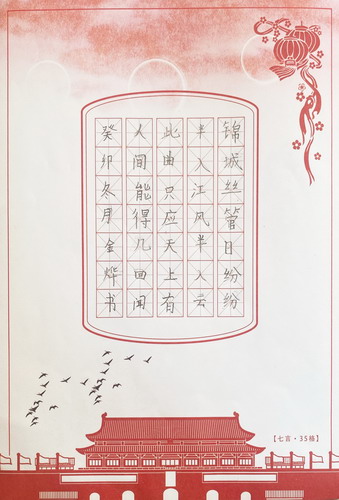 锦城丝管日纷纷
半入江风半入云
此曲只应天上有
人间能得几回闻
癸卯冬月金烨书
【七言·35格】